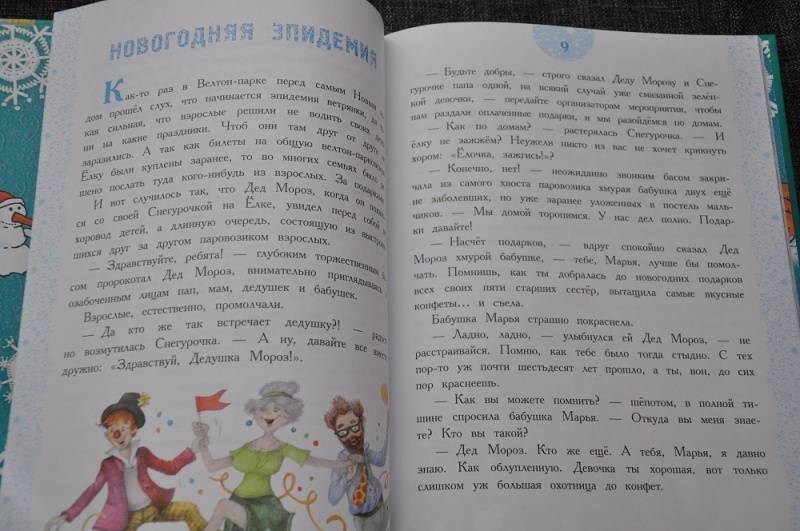 НОВОГОДНЯЯ ЭПИДЕМИЯ
Как-то раз в Велтон-парке перед самым Новым
дом прошёл слух, что начинается эпидемия ветрянки, да
кая сильная, что взрослые решили не водить своих
ни на какие праздники. Чтоб они там друг от друга не
заразились. А так как билеты на общую велтон-парковскую
Ёлку были куплены заранее, то во многих семьях было
шено послать туда кого-нибудь из взрослых. За подарками.
И вот случилось так, что Дед Мороз, когда он
ся со своей Снегурочкой на Ёлке, увидел перед собой не
хоровод детей, а длинную очередь, состоящую из выстроив
шихся друг за другом паровозиком взрослых.
— Здравствуйте, ребята! — глубоким торжественным ба
сом пророкотал Дед Мороз, внимательно приглядываясь к
озабоченным лицам пап, мам, дедушек и бабушек.
Взрослые, естественно, промолчали.
— Да кто же так встречает дедушку?! —
но возмутилась Снегурочка. — А ну, давайте все вместе
дружно: «Здравствуй, Дедушка Мороз!».
9
— Будьте добры, — строго сказал Деду Морозу и Сне-
гурочке папа одной, на всякий случай уже смазанной зелён-
кой девочки, — передайте организаторам мероприятия, чтобы
нам раздали оплаченные подарки, и мы разойдёмся по домам.
— Как по домам? — растерялась Снегурочка. — И
ёлку не зажжём? Неужели никто из вас не хочет крикнуть
хором: «Ёлочка, зажгись!»?
— Конечно, нет! — неожиданно звонким басом закри-
чала из самого хвоста паровозика хмурая бабушка двух ещё
не заболевших, но уже заранее уложенных в постель маль-
чиков. — Мы домой торопимся. У нас дел полно. Подар-
ки давайте!
— Насчёт подарков, — вдруг спокойно сказал Дед
Мороз хмурой бабушке, — тебе, Марья, лучше бы помол-
чать. Помнишь, как ты добралась до новогодних подарков
всех своих пяти старших сестёр, вытащила самые вкусные
конфеты... и съела.
Бабушка Марья страшно покраснела.
— Ладно, ладно, — улыбнулся ей Дед Мороз, — не
расстраивайся. Помню, как тебе было тогда стыдно. С тех
пор-то уж почти шестьдесят лет прошло, а ты, вон, до сих
пор краснеешь.
— Как вы можете помнить? — шёпотом, в полной ти-
шине спросила бабушка Марья. — Откуда вы меня знае-
те? Кто вы такой?
— Дед Мороз. Кто же ещё. А тебя, Марья, я давно
знаю. Как облупленную. Девочка ты хорошая, вот только
слишком уж большая охотница до конфет.